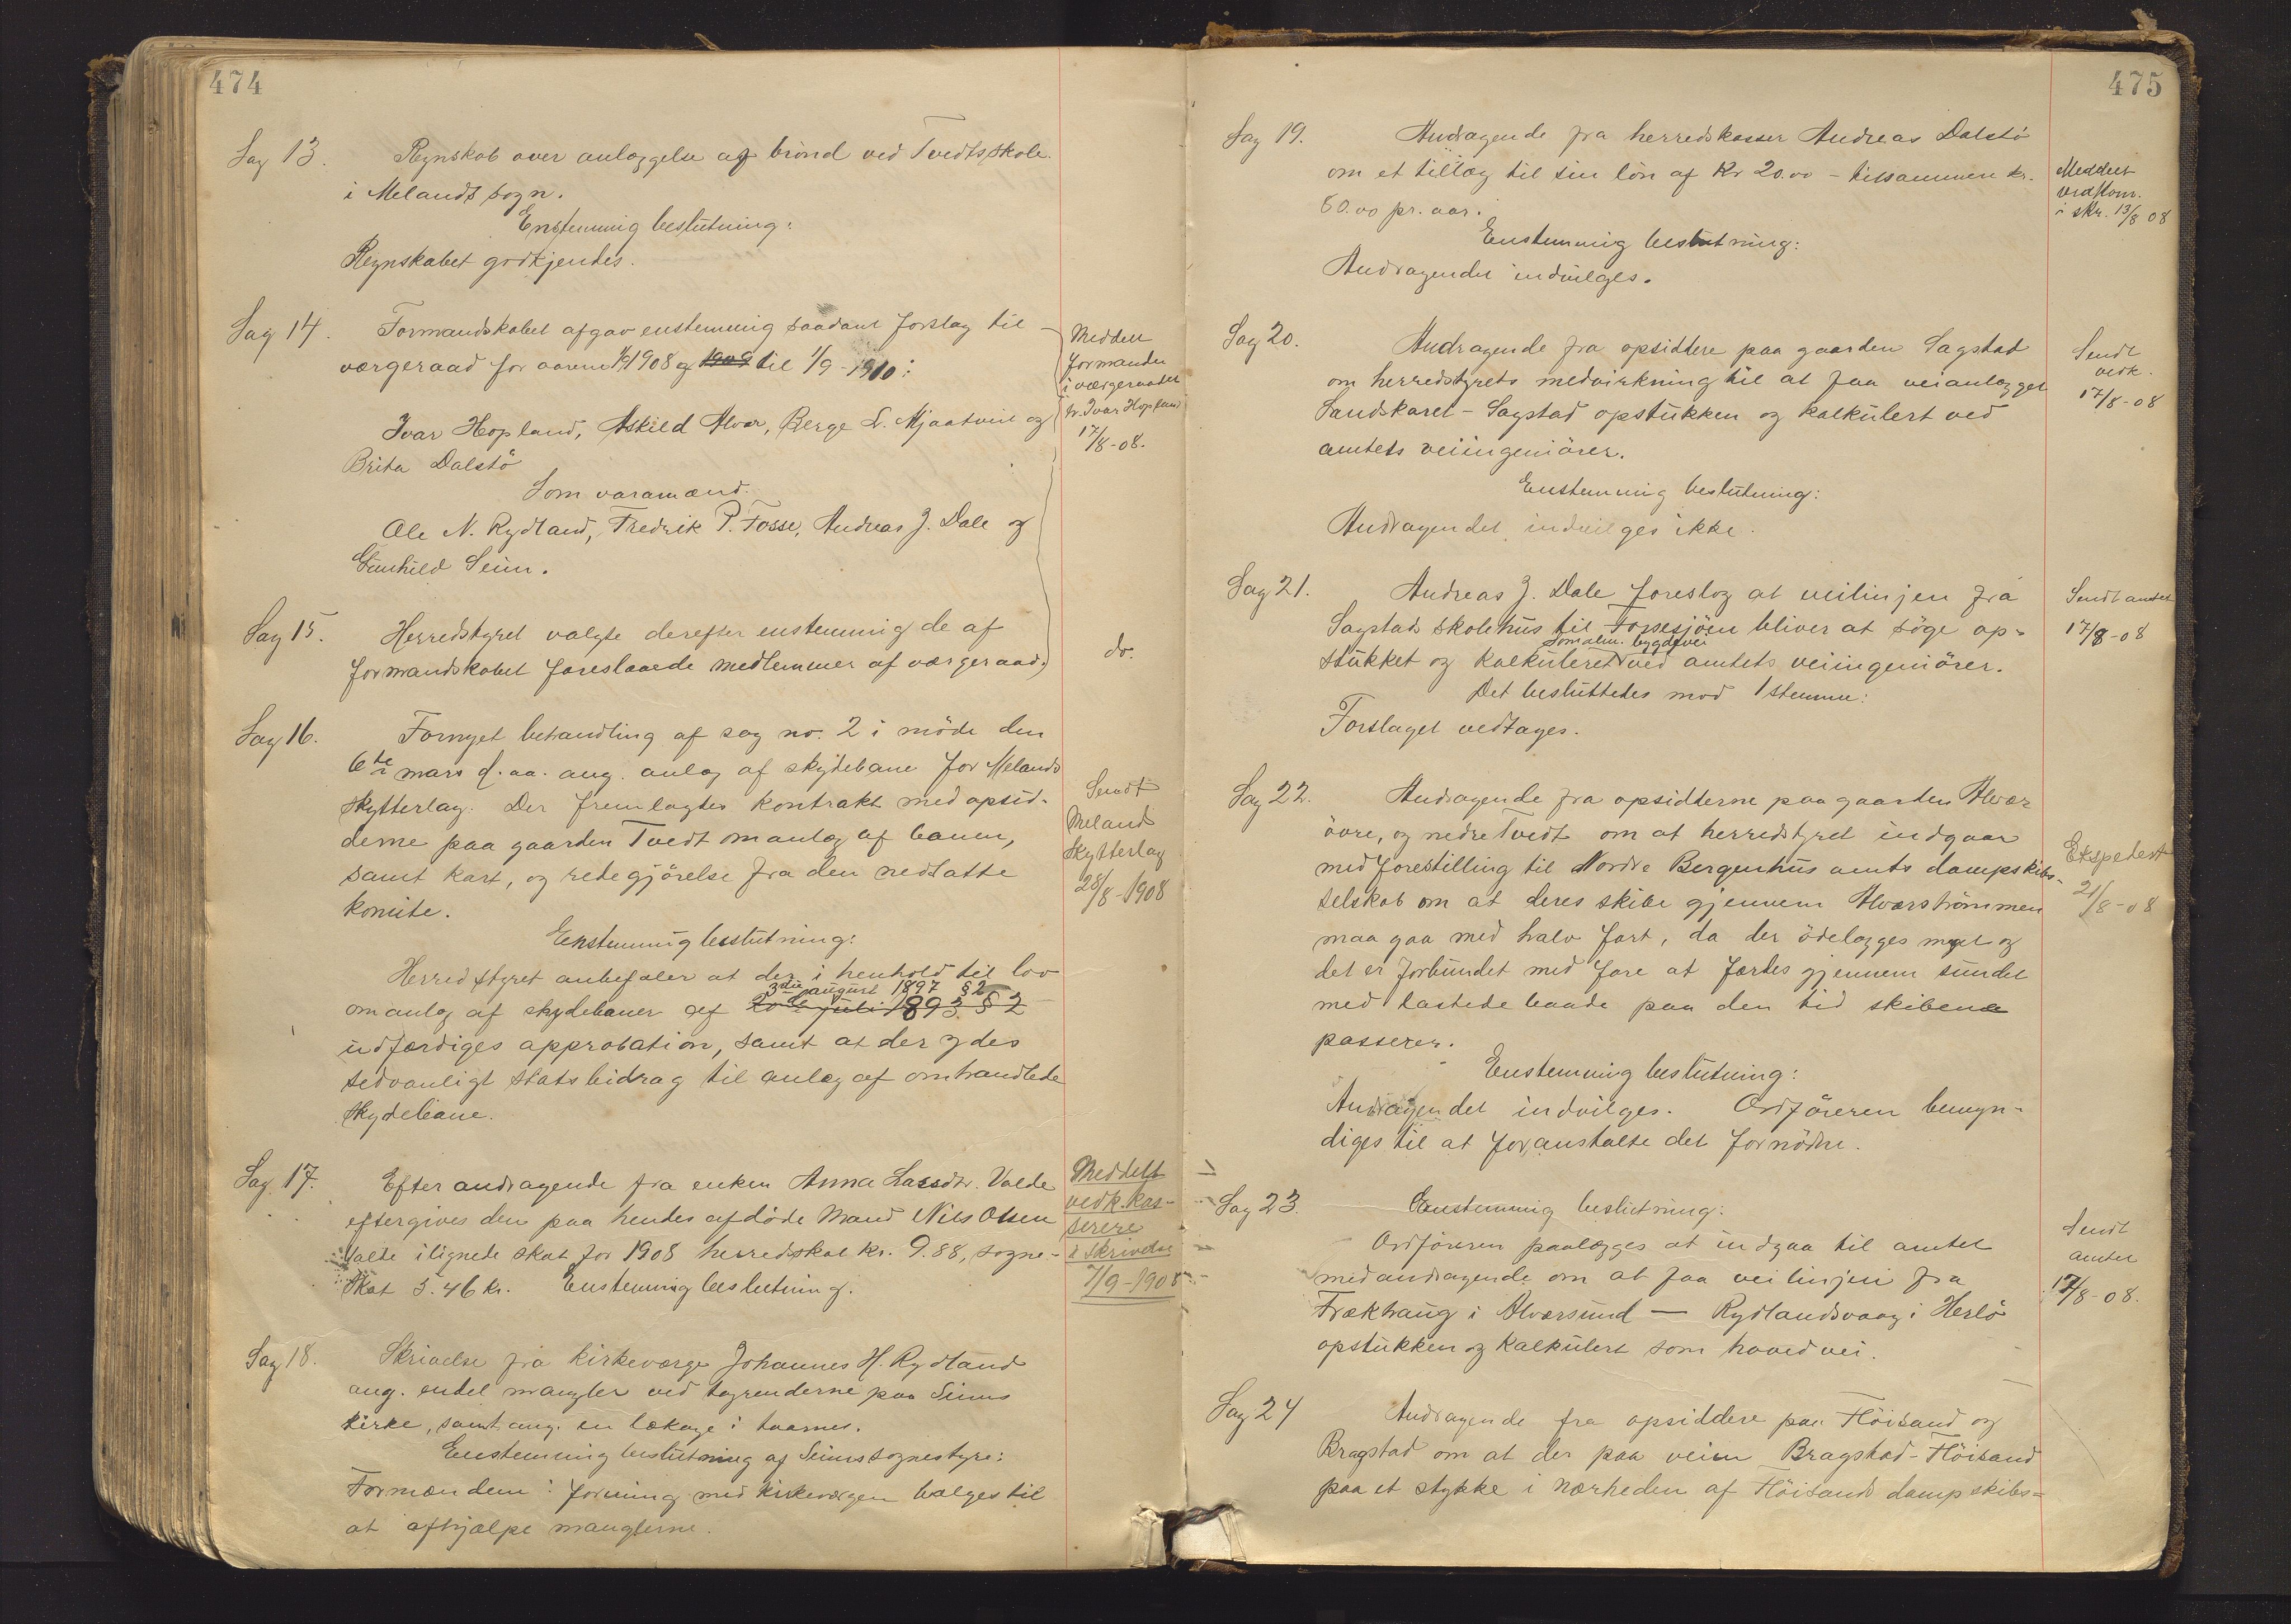 474
Sag 13. Regnskab over anlæggelse af brönd ved Tvedts skole
i Melands sogn.
Enstemmig beslutning:
Regnskabet godkjendes.
Sag 14. Formandskabet afgav enstemmig saadant forslag til
værgeraad for aarene 1/9 1908 og 1909 til 1/9 - 1910:
Ivar Hopland, Askild Alvær, Berge L. Mjaatveit og
Brita Dalstö
Som varamænd.
Ole N. Rydland, Fredrik P. Fosse, Andreas J. Dale og
Gunhild Seim.
Meddelt
formanden
i værgeraadet
hr. Ivar Hopland
17/8-08.
Sag 15. Herredstyret valgte derefter enstemmig de af
formandskabet foreslaaede medlemmer af værgeraad.
do.
Sag 16. Fornyet behandling af sag no. 2 i möde den
6te mars d. aa. ang. anlæg af skydebane for Melands
skytterlag. Der fremlagdes kontrakt med opsid-
derne paa gaarden Tvedt om anlæg af banen,
samt kart, og redegjörelse fra den nedsatte
komite.
Enstemmig beslutning:
Herredstyret anbefaler at der i henhold til lov
3die august 1897 § 2
om anlæg af skydebaner af 20de juli 1893 § 2
udfærdiges approbation, samt at der ydes
sedvanligt statsbidrag til anlæg af omhandlede
skydebane.
Sendt
Meland
Skytterlag
28/8-1908
Sag 17. Efter andragende fra enken Anna Larsdtr. Valde
eftergives den paa hendes afdöde mand Nils Olsen
Valde ilignede skat for 1908 herredskat kr. 9.88, sogne-
skat 5.46 kr. Enstemmig beslutning.
Meddelt
vedk. kas-
serere
i skrivelse
7/9-1908
Sag 18. Skrivelse fra kirkeværge Johannes H. Rydland
ang. endel mangler ved tagrenderne paa Seims
kirke, samt ang. en lækage i taarnet.
Enstemmig beslutning af Seims sognestyre:
Formanden i forening med kirkeværgen vælges til
at afhjælpe manglerne.
475
Sag 19. Andragende fra herredskasser Andreas Dalstö
om et tillæg til sin lön af Kr 20.00 - tilsammen kr.
60.00 pr. aar.
Enstemmig beslutning:
Andragendet indvilges.
Meddelt
vedkom.
i skr. 13/8 08
Sag 20. Andragende fra opsiddere paa gaarden Sagstad
om herredstyrets medvirkning til at faa veianlægget
Sandskaret - Sagstad opstukken og kalkulert ved
amtets veiingeniörer.
Enstemmig beslutning:
Andragendet indvilges ikke.
Sendt
vedk.
17/8-08
Sag 21. Andreas J. Dale foreslog at veilinjen fra
Sagstads skolehus til Fossesjöen bliver at söge op-
som alm. bygdevei
stukket og kalkuleret ved amtets veiingeniörer.
Det besluttedes mod 1 stemme:
Forslaget vedtages.
Sendt amtet
17/8-08
Sag 22. Andragende fra opsidderne paa gaarden Alvær
övre, og nedre Tvedt om at herredstyret indgaar
med forestilling til Nordre Bergenhus amts dampskibs-
selskab om at deres skibe gjennem Alværströmmen
maa gaa med halv fart, da der ödelægges meget og
det er forbundet med fare at færdes gjennem sundet
med lastede baade paa den tid skibene
passerer.
Enstemmig beslutning:
Andragendet indvilges. Ordföreren bemyn-
diges til at foranstalte det fornödne.
Ekspedert
21/8-08
Sag 23. Enstemmig beslutning:
Ordföreren paalægges at indgaa til amtet
med andragende om at faa veilinjen fra
Frækhaug i Alværsund — Rydlandsvaag i Herlö
opstukken og kalkulert som hovedvei.
Sendt
amtet
17/8-08.
Sag 24 Andragende fra opsiddere paa Flöisand og
Bragstad om at der paa veien Bragstad - Flöisand
paa et stykke i nærheden af Flöisands dampskibs=